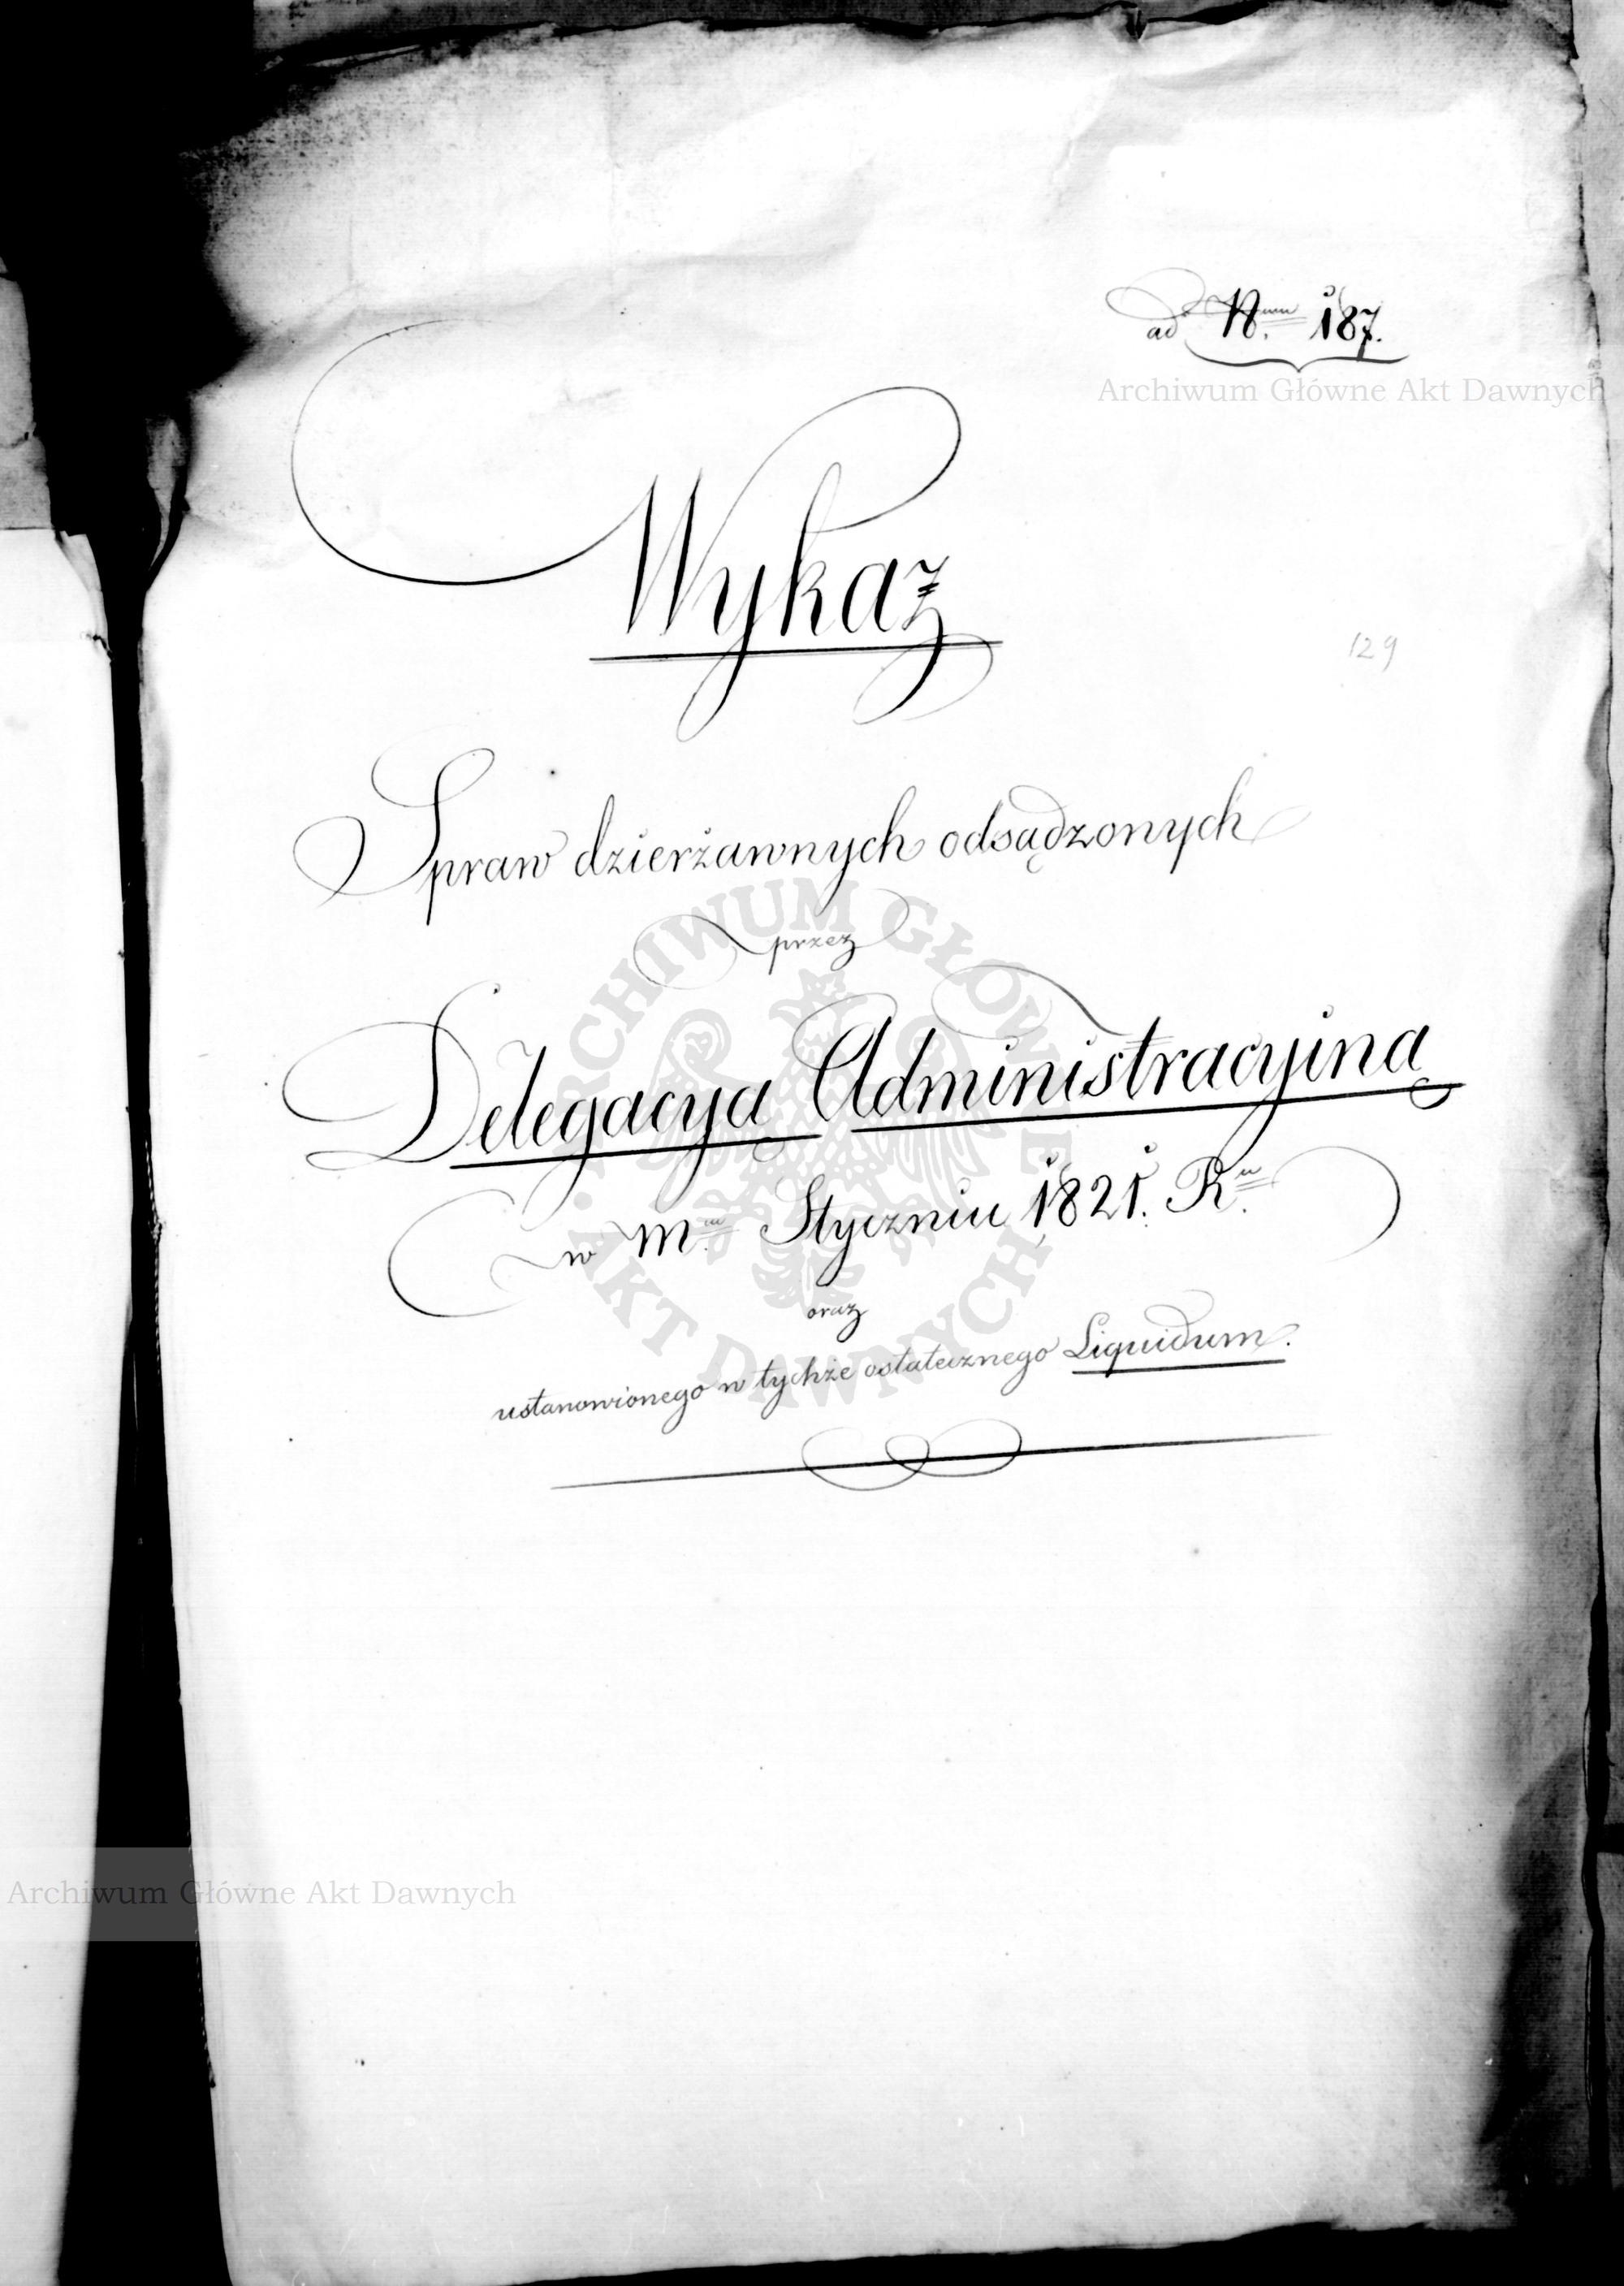 ad Nrum 187.
Archiwum Główne Akt Dawnych
Wykaz
129
Spraw dzierżawnych odsądzonych
przez
Delegacyą Administracyiną
w Mcu Styczniu 1821. Ru
oraz
ustanowionego w tychże ostatecznego Liquidum.
ARCHIWUM GŁÓWNE AKT DAWNYCH
Archiwum Główne Akt Dawnych